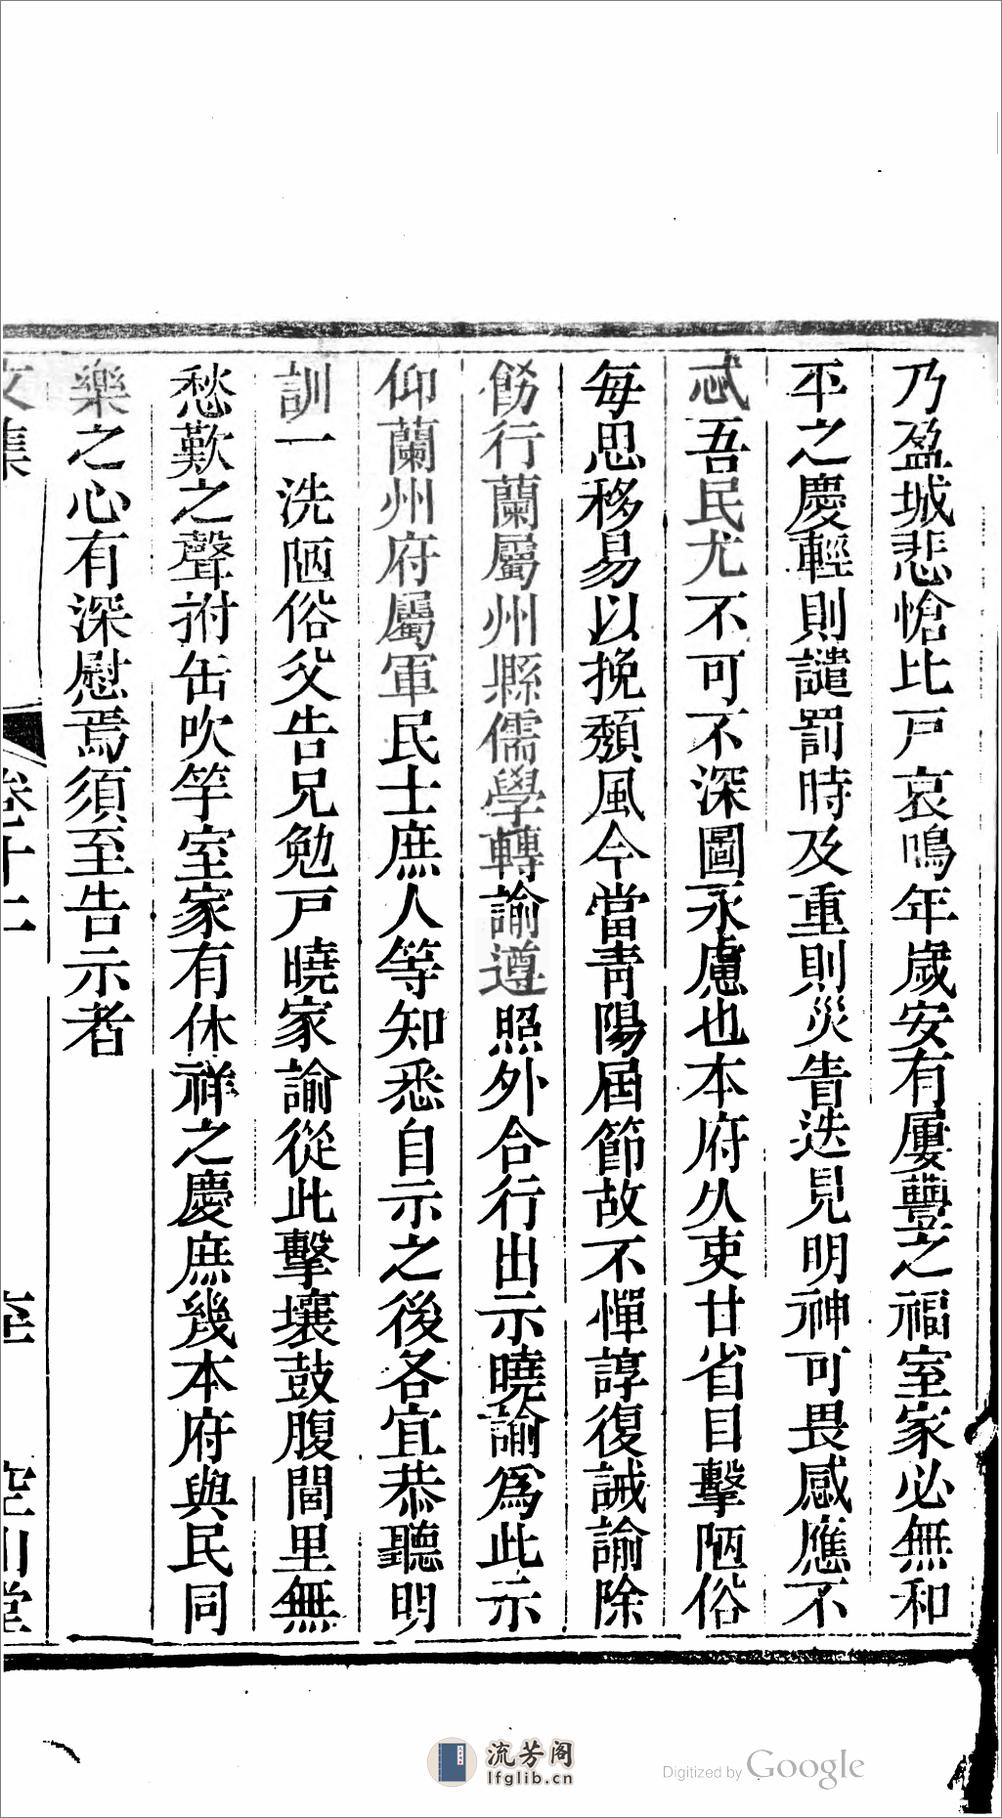 乃盈城悲愴比戸哀鳴年歲安有屢豐之福室家必無和
平之慶輕則譴罰時及重則災眚迭見明神可畏感應不
忒吾民尤不可不深圖永慮也本府久吏廿省目擊陋俗
每思移易以挽頽風今當靑陽屆節故不憚諄復誡諭除
飭行蘭屬州縣儒學轉諭遵照外合行出示曉諭爲此示
仰蘭州府屬軍民士庶人等知悉自示之後各宜恭聽明
訓一洗陋俗父告兄勉戸曉家諭從此擊壤鼓腹閭里無
愁歎之聲拊缶吹竽室家有休祥之慶庶幾本府與民同
樂之心有深慰焉須至告示者
文集
空山堂
流芳阁
lfglib.cn
Digitized by Google